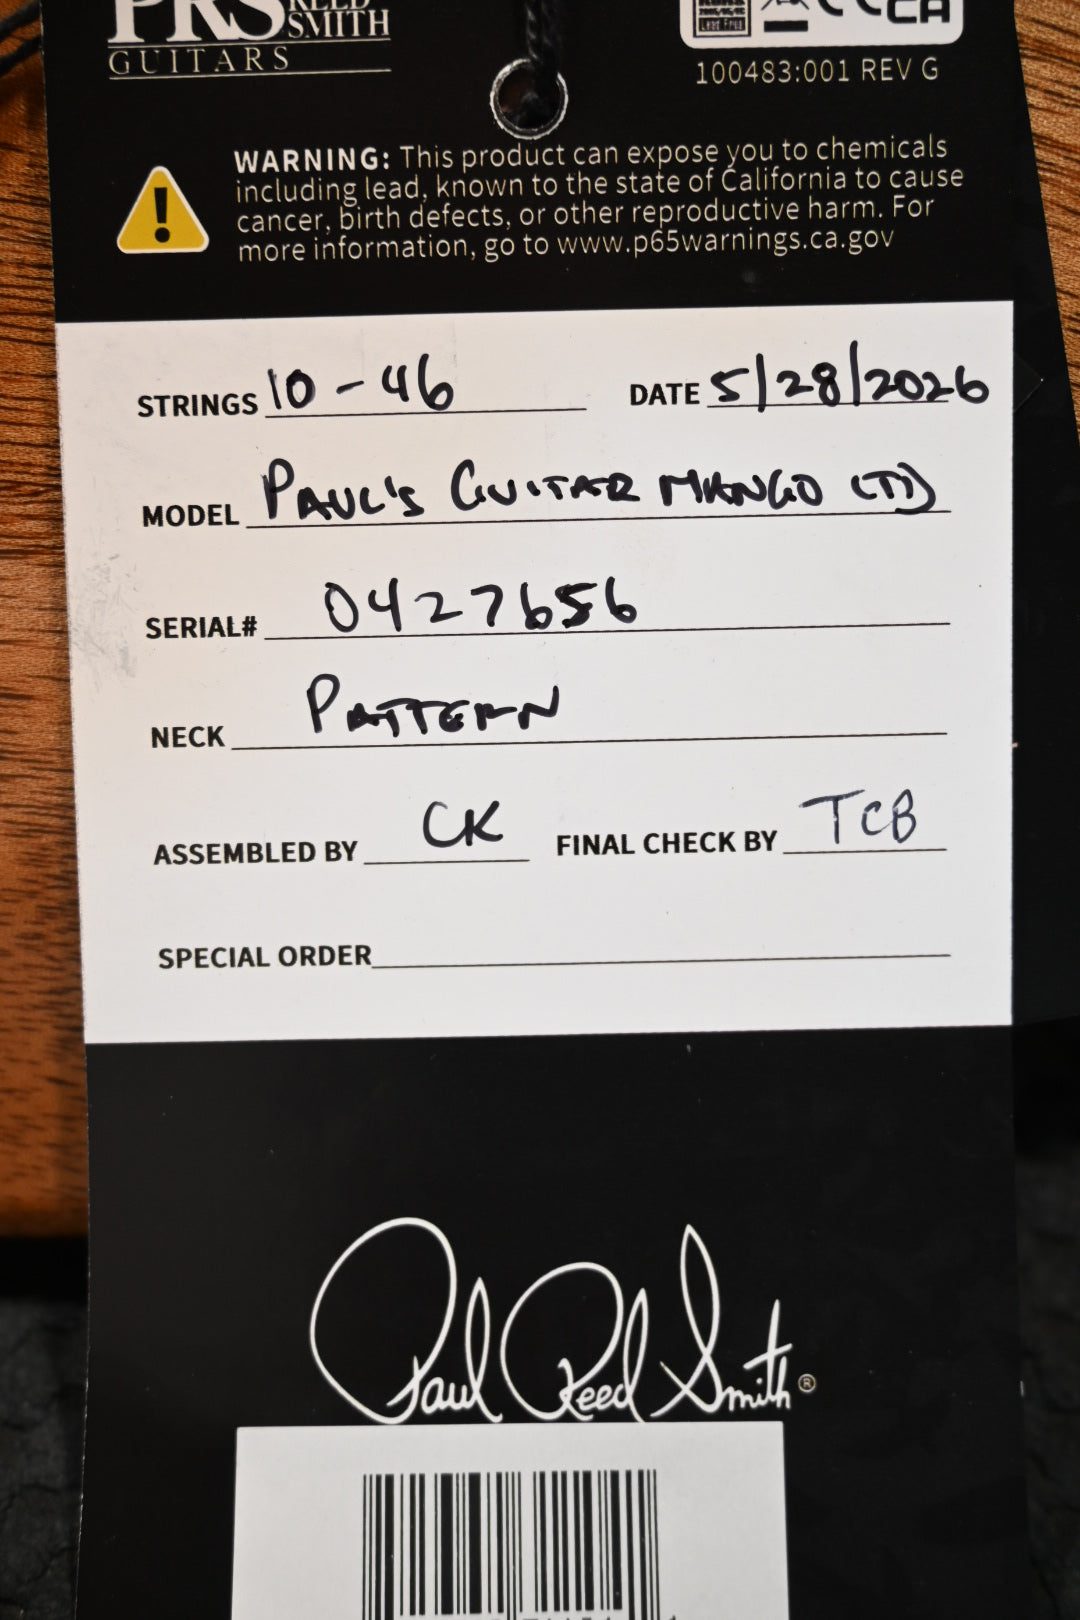 PRS REED SMITH
GUITARS
Lead Free
CA
100483:001 REV G
WARNING: This product can expose you to chemicals
including lead, known to the state of California to cause
cancer, birth defects, or other reproductive harm. For
more information, go to www.p65warnings.ca.gov
STRINGS 10-46 DATE 5/28/2026
MODEL PAUL'S GUITAR MANGO (TI)
SERIAL# 0427656
NECK PATTERN
ASSEMBLED BY CK FINAL CHECK BY TCB
SPECIAL ORDER
Paul Reed Smith®